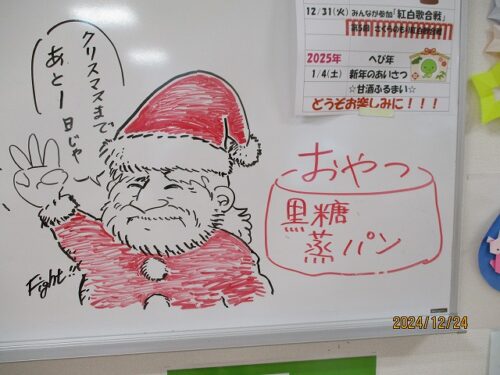 クリスマスまで
あと1日じゃ
Fight!!
12/31(火) みんなが参加「紅白歌合戦」
2025年 へび年
1/4(土) 新年のあいさつ
☆甘酒ふるまい☆
どうぞお楽しみに!!!
おやつ
黒糖
蒸パン
2024/12/24